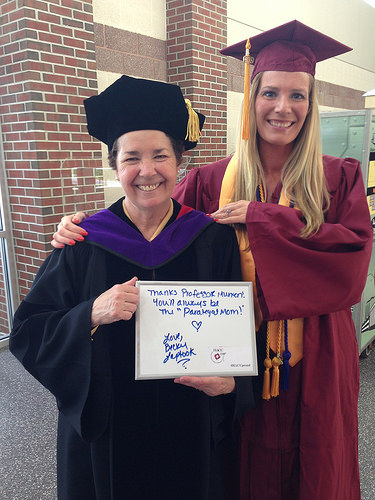 Thanks Professor Munert.
You'll always be
the "Paralegal Mom!"
Love,
Becky